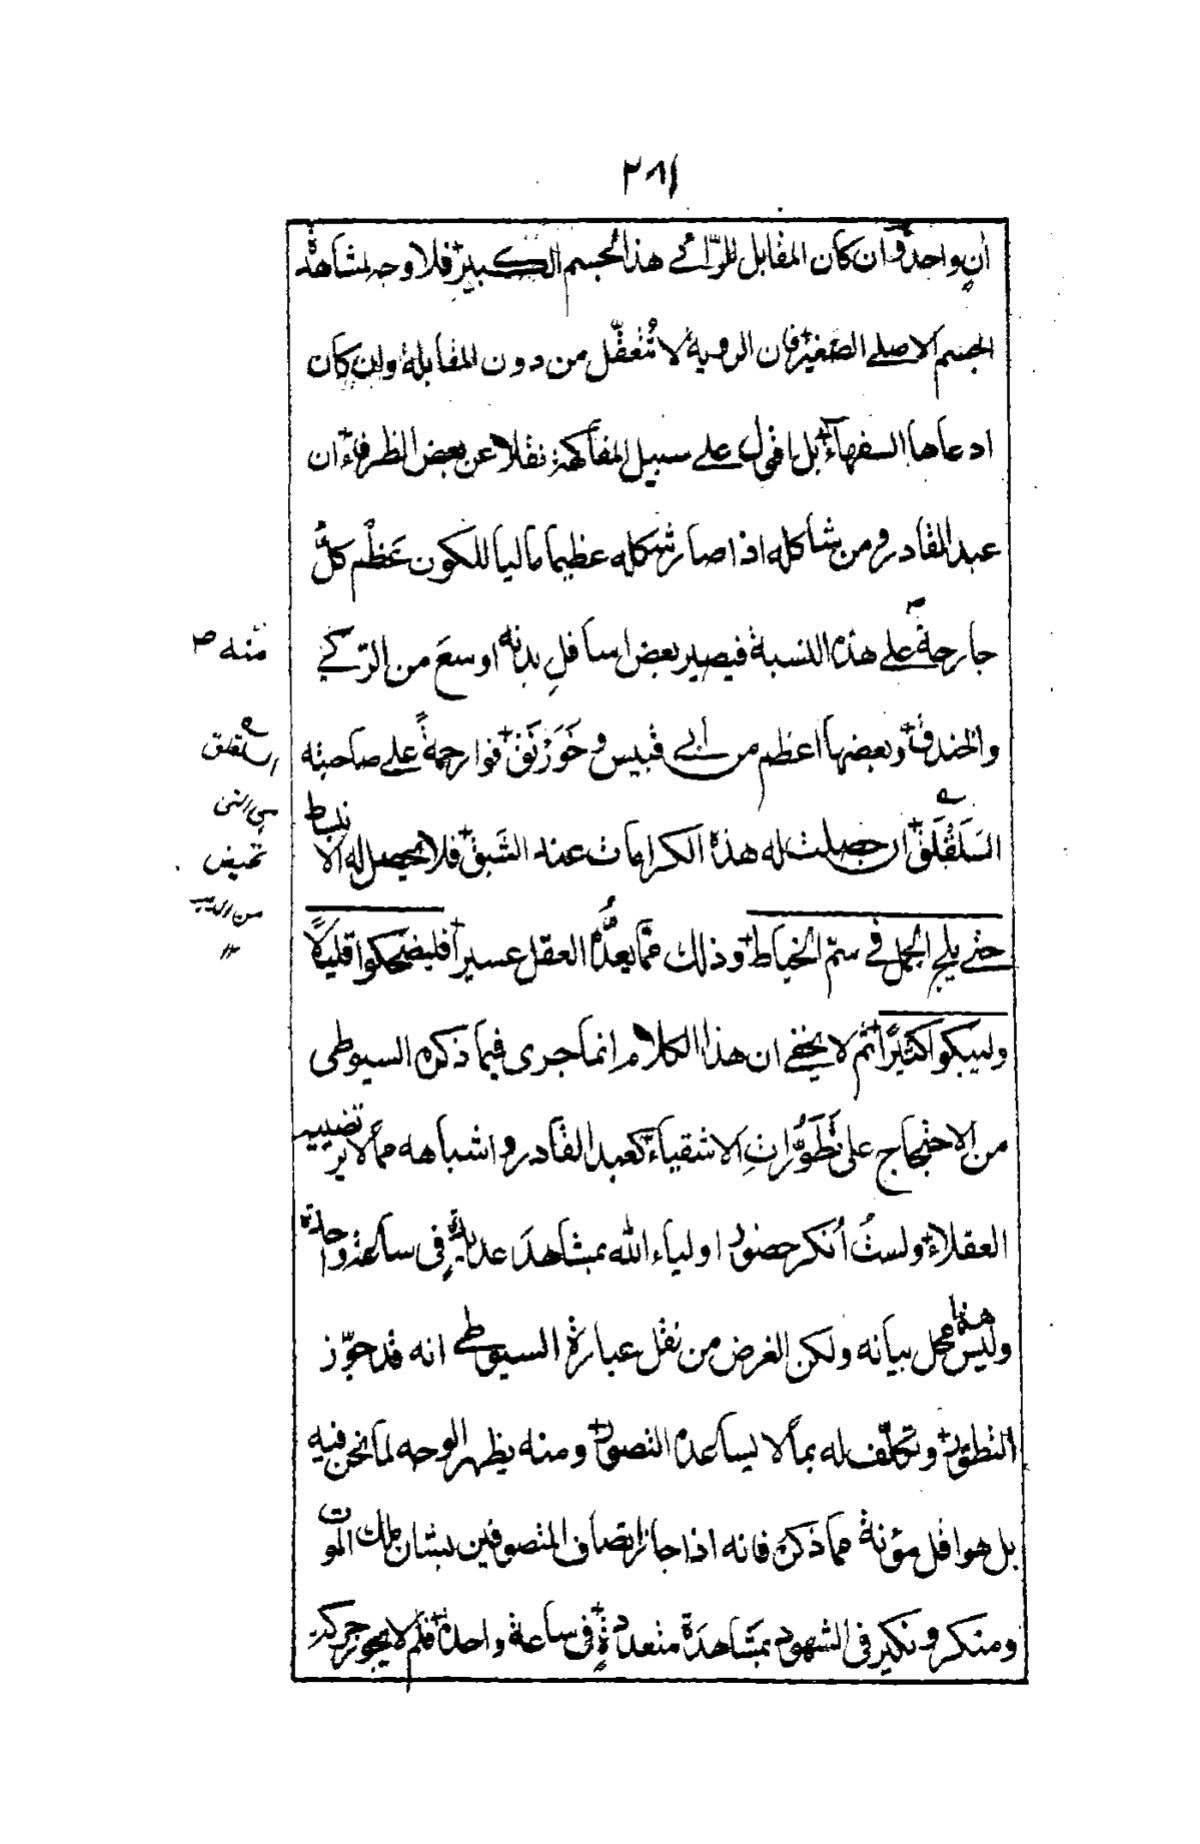 ٢٨١
ان واحد و ان كان المقابل للرّائے هذا الجسم الكبير فلا وجه لمشاهدة
الجسم الاصلے الصغير فان الروية لا تُتعقّل من دون المقابلة وان كان
ادعاها السفهاء بل اقول علے سبيل المفاكهة نقلا عن بعض الظرفاء ان
عبد القادر و من شاكله اذا صار شكله عظيما ماليا للكون عَظُم كلُّ
جارحة علے هذه النسبة فيصير بعض اسافلِ بدنه اوسعَ من الرّكے
والخندق وبعضها اعظم من ابے قبيس و خَوَرْنَق فوا رحمةً علے صاحبته
السَلَقْلَق ان حصلت له هذه الكرامات عند الشَبق فلا يحصل له الانبساط
حتے يلج الجمل فے سمّ الخياط وذلك ممّا يعُدُّه العقل عسيراً فليضحكوا قليلاً
وليبكوا كثيرًا ثم لا يخفے ان هذا الكلام انما جرى فيما ذكره السيوطى
من الاحتجاج على تَطَوُّراتِ الاشقياء كعبد القادر و اشباهه ممّا لا يرتضيه
العقلاء ولستُ اُنكر حضور اولياء الله بمشاهدَ عديدةٍ فى ساعة واحدة
وليس هذا محل بيانه ولكن الغرض من نقل عبارة السيوطے انه قد جوّز
التطور و تكلّف له بما لا يساعده التصور ومنه يظهر الوجه لما نحن فيه
بل هو اقل مؤنة مما ذكره فانه اذا جاز اتصاف المتصوفين بشان ملك الموت
ومنكر و نكير فى الشهود بمشاهدَة متعددةٍ فى ساعة واحدة فلم لا يجوز
منه
السلقلق
تحيض
من الدبر